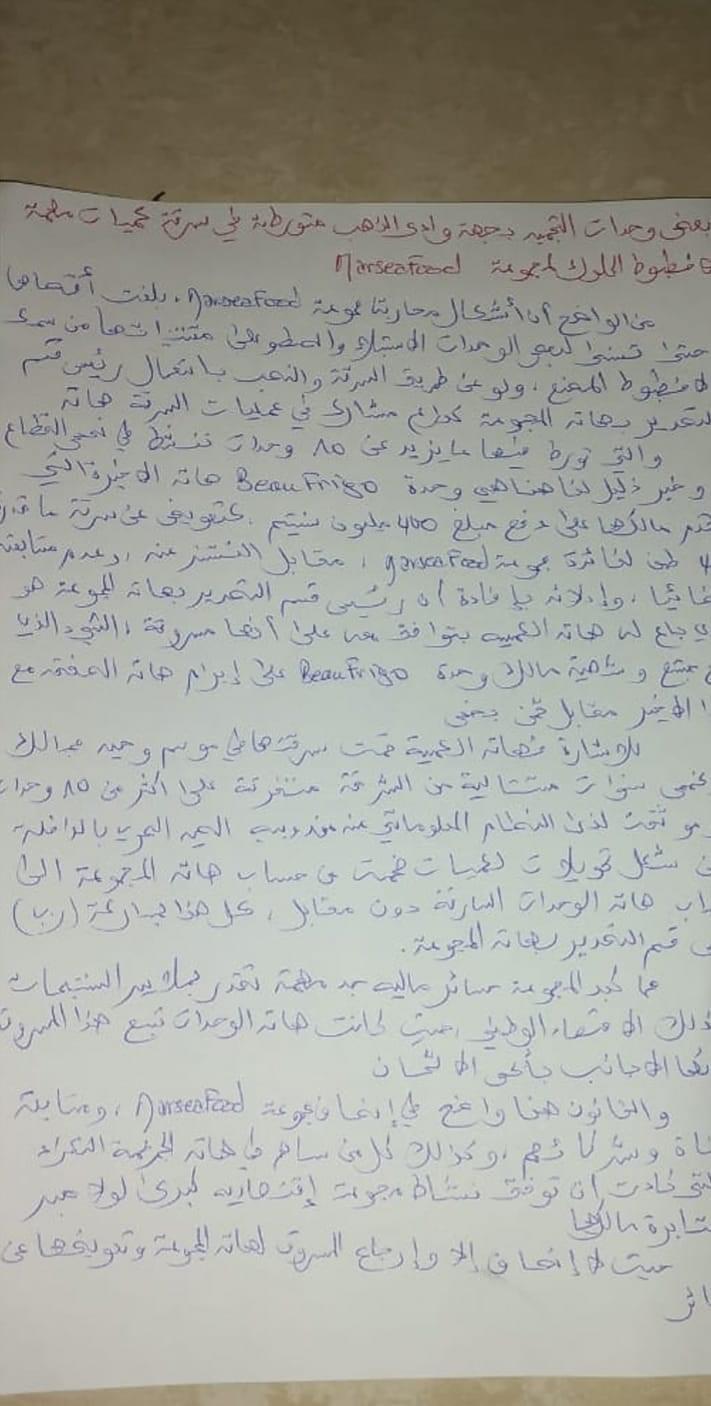 بعض وحدات التجميد بجهة وادي الذهب متورطة في سرقة كميات مهمة
الأخطبوط المملوك لمجموعة Marseafood
من الواضح أن أشكال محاربة مجموعة Marseafood، بلغت أقصاها
حتى تسنى لبعض الوحدات الاستيلاء والسطو على مقتنياتها من سمك
الأخطبوط المصنع، ولو عن طريق السرقة والنصب باستعمال رئيس قسم
التصدير بهاته المجموعة كطرف مشارك في عمليات السرقة هاته
والتي تورط فيها ما يزيد عن 18 وحدات تنشط في نفس القطاع
وخير دليل لنا هنا هي وحدة BeauFrigo هاته الاخيرة التي
قدم مالكها على دفع مبلغ 400 مليون سنتيم كتعويض عن سرقة ما قدره
طن لفائدة مجموعة Marseafood، مقابل التستر عنه، وعدم متابعته
وإدلائه بإفادة أن رئيس قسم التصدير بهاته المجموعة هو
باع له هاته الكمية بتوافق معه على أنها مسروقة، الشيء الذي
مالك وحدة BeauFrigo على إبرام هاته الصفقة مع
هذا الاخير مقابل ثمن بخس
للاشارة فهاته الكمية تمت سرقتها في موسم وحيد
سنوات متتالية من السرقة متفرقة على اكثر من 18 وحدات
النظام المعلوماتي عند مندوبية الصيد البحري بالداخلة
شكل تحويلات لكميات ضخمة من حساب هاته المجموعة الى
حساب هاته الوحدات السارقة دون مقابل، كل هذا
قسم التصدير بهاته المجموعة.
مما كبد المجموعة خسائر مالية جد مهمة تقدر بملايير السنتيمات
وكذلك الاقتصاد الوطني، حيث كانت هاته الوحدات تبيع هذا المسروق
الاجانب بأبخس الاثمان
والقانون هنا واضح في إنصاف مجموعة Marseafood، ومتابعة
وشركائهم، وكذلك كل من ساهم في هاته الجريمة النكراء
التي كادت ان توقف نشاط مجموعة إقتصادية كبرى لولا صبر
مثابرة مالكها
حيث لا إنصاف إلا وإرجاع المسروق لهاته المجموعة وتعويضها عن